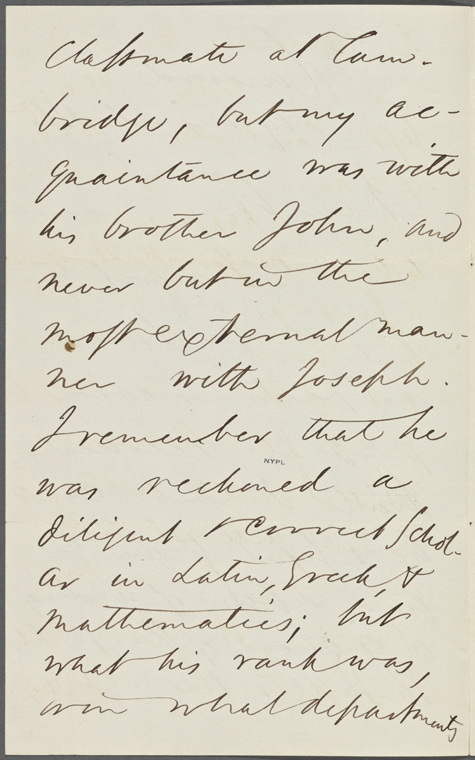 Classmate at Cam-
bridge, but my ac-
quaintance was with
his brother John, and
never but in the
most external man-
ner with Joseph.
I remember that he
NYPL
was reckoned a
diligent & correct Schol-
ar in Latin, Greek, &
Mathematics; but
what his rank was,
or in what departments